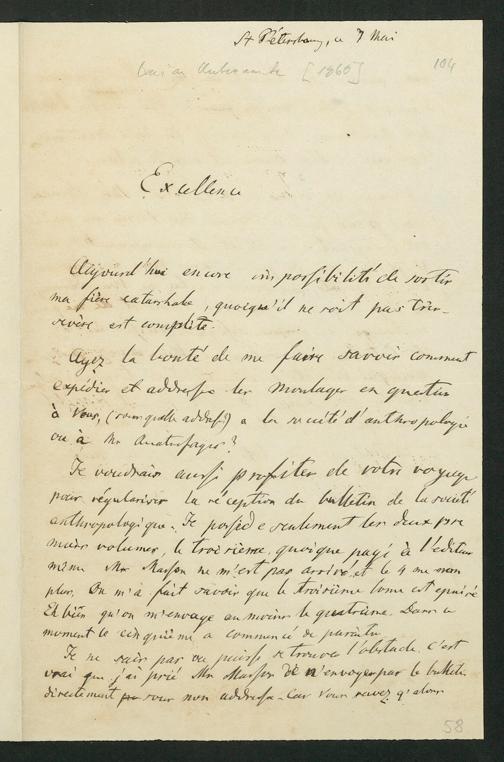 St Pétersbourg, ce 7 Mai
[1865]
104
Excellence
Aujourd'hui encore impossibilité de sortir
ma fièvre catarrhale, quoiqu'il ne soit pas très
sevère est complète.
Ayez la bonté de me faire savoir comment
expédier et addresser les moulages en question
à Vous, (sous quelle addresse) a la société d'anthropologie
ou à Mr Quatrefages?
Je voudrais aussi profiter de votre voyage
pour régulariser la réception du bulletin de la société
anthropologique. Je possède seulement les deux pre
miers volumes, le troisième, quoique payé à l'éditeur
même Mr Masson ne m'est pas arrivé, et le 4me non
plus. On m'a fait savoir que le troisième tome est epuisé
Eh bien qu'on m'envoye au moins le quatrième. Dans ce
moment le cinquième a commencé de paraitre
Je ne sais pas ou puisse se trouver l'obstacle. C'est
vrai que j'ai prié Mr Masson de n'envoyer pas le bulletin
directement sous mon addresse. Car vous savez q'alors
58